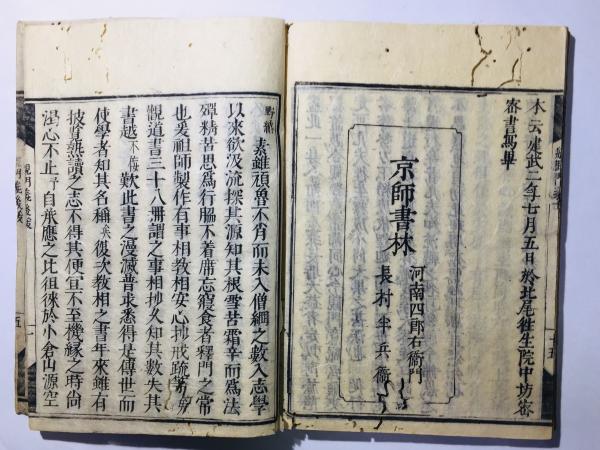 本云建武二年七月五日於北尾徃生院中坊密
密書寫畢
京師書林
河南四郎右衛門
長村半兵衛
十五
野衲素雖頑魯不肖而未入僧綱之數入志學
以來欲汲流探其源知其根雪苦霜辛而爲法
殫精苦思爲行脇不着席忘飡食者釋門之常
也爰祖師製作有事相教相安心抄戒疏等
觀道書三十八冊謂之事相抄久知其數失其
書越不侮歎此書之漫滅普求悉得是傳世而
使學者知其名稱矣復次教相之書年來雖有
披尋熟讀之志不得其便宜不至機縁之時尚
心不止予自應之比徂徠於小倉山源空
五